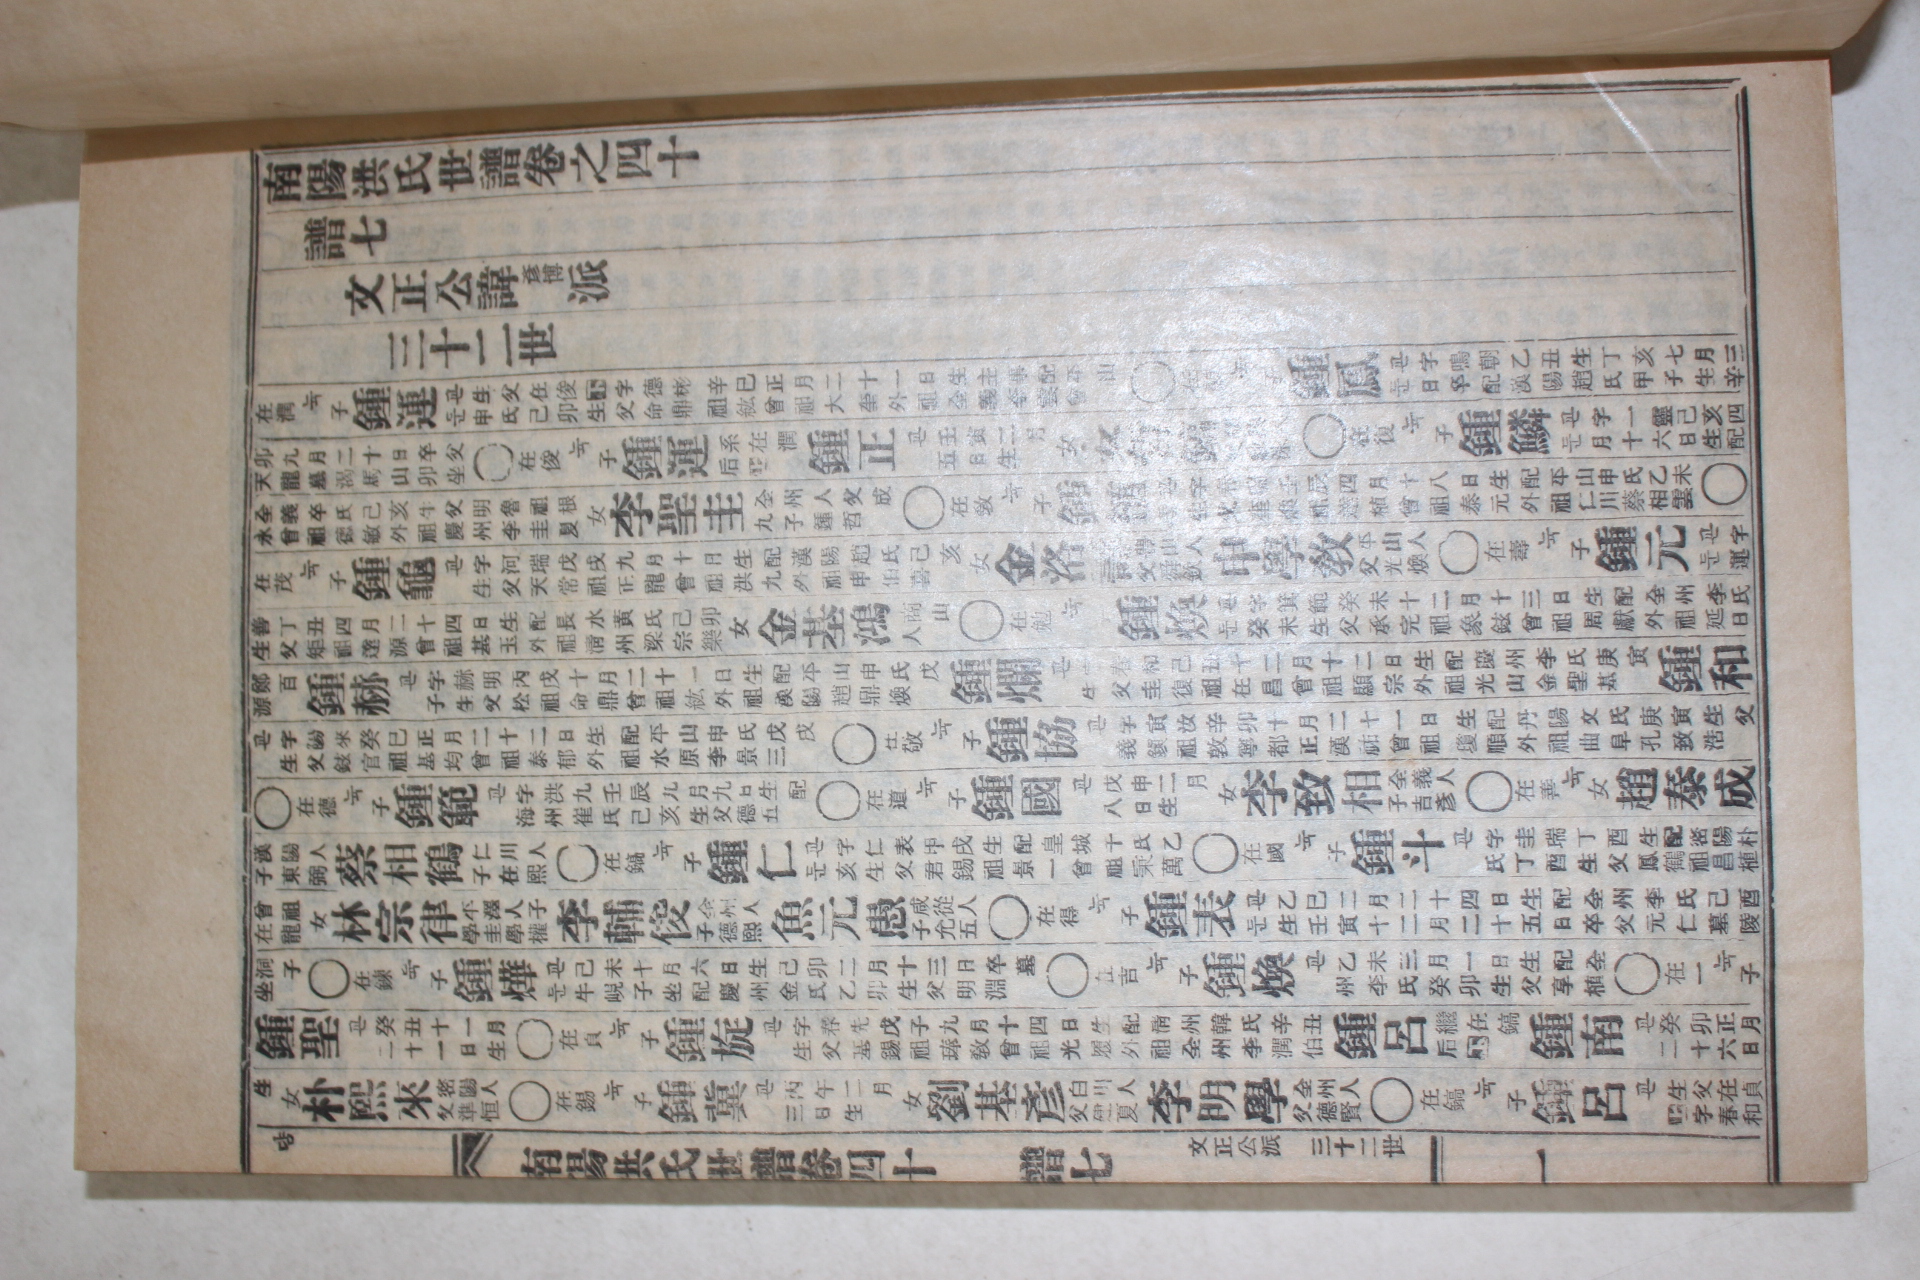 南陽洪氏世譜卷之四十
譜七
文正公諱彦博派
三十二世
在潤눅子鍾運
字德彬辛巳正月二十一日生主事配平山
申氏己卯生父命鼎祖鉉曾祖大奎外祖全義李
鍾鳳
字鳴朝乙丑生丁亥七月三
日卒配漢陽趙氏甲子生辛
卯九月二十日卒父
天龍墓渴馬山卯坐
○在俊눅子鍾運
系在潤
后
鍾正
壬寅二月
五日生
○在復눅子鍾鱗
字一靈己亥四
月十六日生配
全義卒氏己亥生父明魯祖根
永曾祖德敏外祖慶州李圭夏
女李聖圭
全州人父成
九子鍾哲
○在敎눅子
壬辰四月十八日生配平山申氏乙未
植曾祖泰元外祖仁川蔡相雲
○在茂눅子鍾龜
字河瑞戊戌九月十日生配漢陽趙氏己亥
生父天常祖正龍曾祖洪九外祖申伯喜
女金洛
申學敎
平山人
父光煥
○在壽눅子鍾元
字
運
善丁丑四月二十四日生配長水黃氏己卯
生父矩祖達源曾祖基玉外祖淸州梁宗樂
女金基鴻
商山
人
○在勉눅
鍾煥
字箕範癸未十二月十三日生配全州李氏
癸未生父承完祖象鉉曾祖周獻外祖延日
鄭百
源
鍾赫
字赫明丙戌十月二十一日生配平山申氏戊
子生父松祖命鼎曾祖紘外祖漢陽趙鼎煥
鍾爛
春和己丑十二月十二日生配慶州李氏庚寅
生父圭復祖在昌曾祖顯宗外祖光山金聖基
鍾和
字陽來癸巳正月二十二日生配平山申氏戊戌
生父鉉官祖基均曾祖泰郁外祖水原李景三
○在敬눅子鍾協
字寅汝辛卯十月二十一日生配丹陽文氏庚寅生父
義鎭祖敦寧都正漢祐曾祖瓊順外祖曲阜孔致浩
○在德눅子鍾範
字洪九壬辰九月九日生配
海州崔氏己亥生父德五
○在道눅子鍾國
戊申二月
八日生
女李致相
全義人
子吉彦
○在善눅女趙泰成
漢陽人
子東弼
蔡相鶴
仁川人
子在熙
○在鎬눅子鍾仁
字仁表甲戌生配皇城千氏乙
亥生父君錫祖景一曾祖秉萬
○在國눅子鍾斗
字圭瑞丁酉生配密陽朴
氏丁酉生父鳳鶴祖昌植
曾祖
在龍
女林宗律
平澤人子
學圭學權
李輔俊
全州人
子德熙
魚元愚
咸從人
子允五
○在得눅子鍾表
乙巳二月二十四日生配全州李氏己酉
生壬寅十二月二十五日卒父元仁墓陵
洞子
坐
○在鍊눅子鍾燁
己未十月六日生己卯二月十三日卒墓
牛峴子坐配慶州金氏乙卯生父明淵
○在吉눅子鍾煥
乙未三月一日生配全
州李氏癸卯生父享植
○在一눅子
鍾聖
癸丑十一月
二十一日生
○在貞눅子鍾旋
字春先戊子九月十四日生配淸州韓氏辛丑
生父基錫祖琫敎曾祖光履外祖全州李潤伯
鍾呂
繼在鎬
后
鍾南
癸卯正月
二十六日
生
女朴熙來
密陽人
父準恒
○在錫눅子鍾冀
丙午二月
三日生
女劉基彦
白川人
父建夏
李明學
全州人
父德賢
○在鎬눅子鍾呂
生父在貞
字春和
南陽洪氏世譜卷四十 譜七 文正公派 三十二世 一